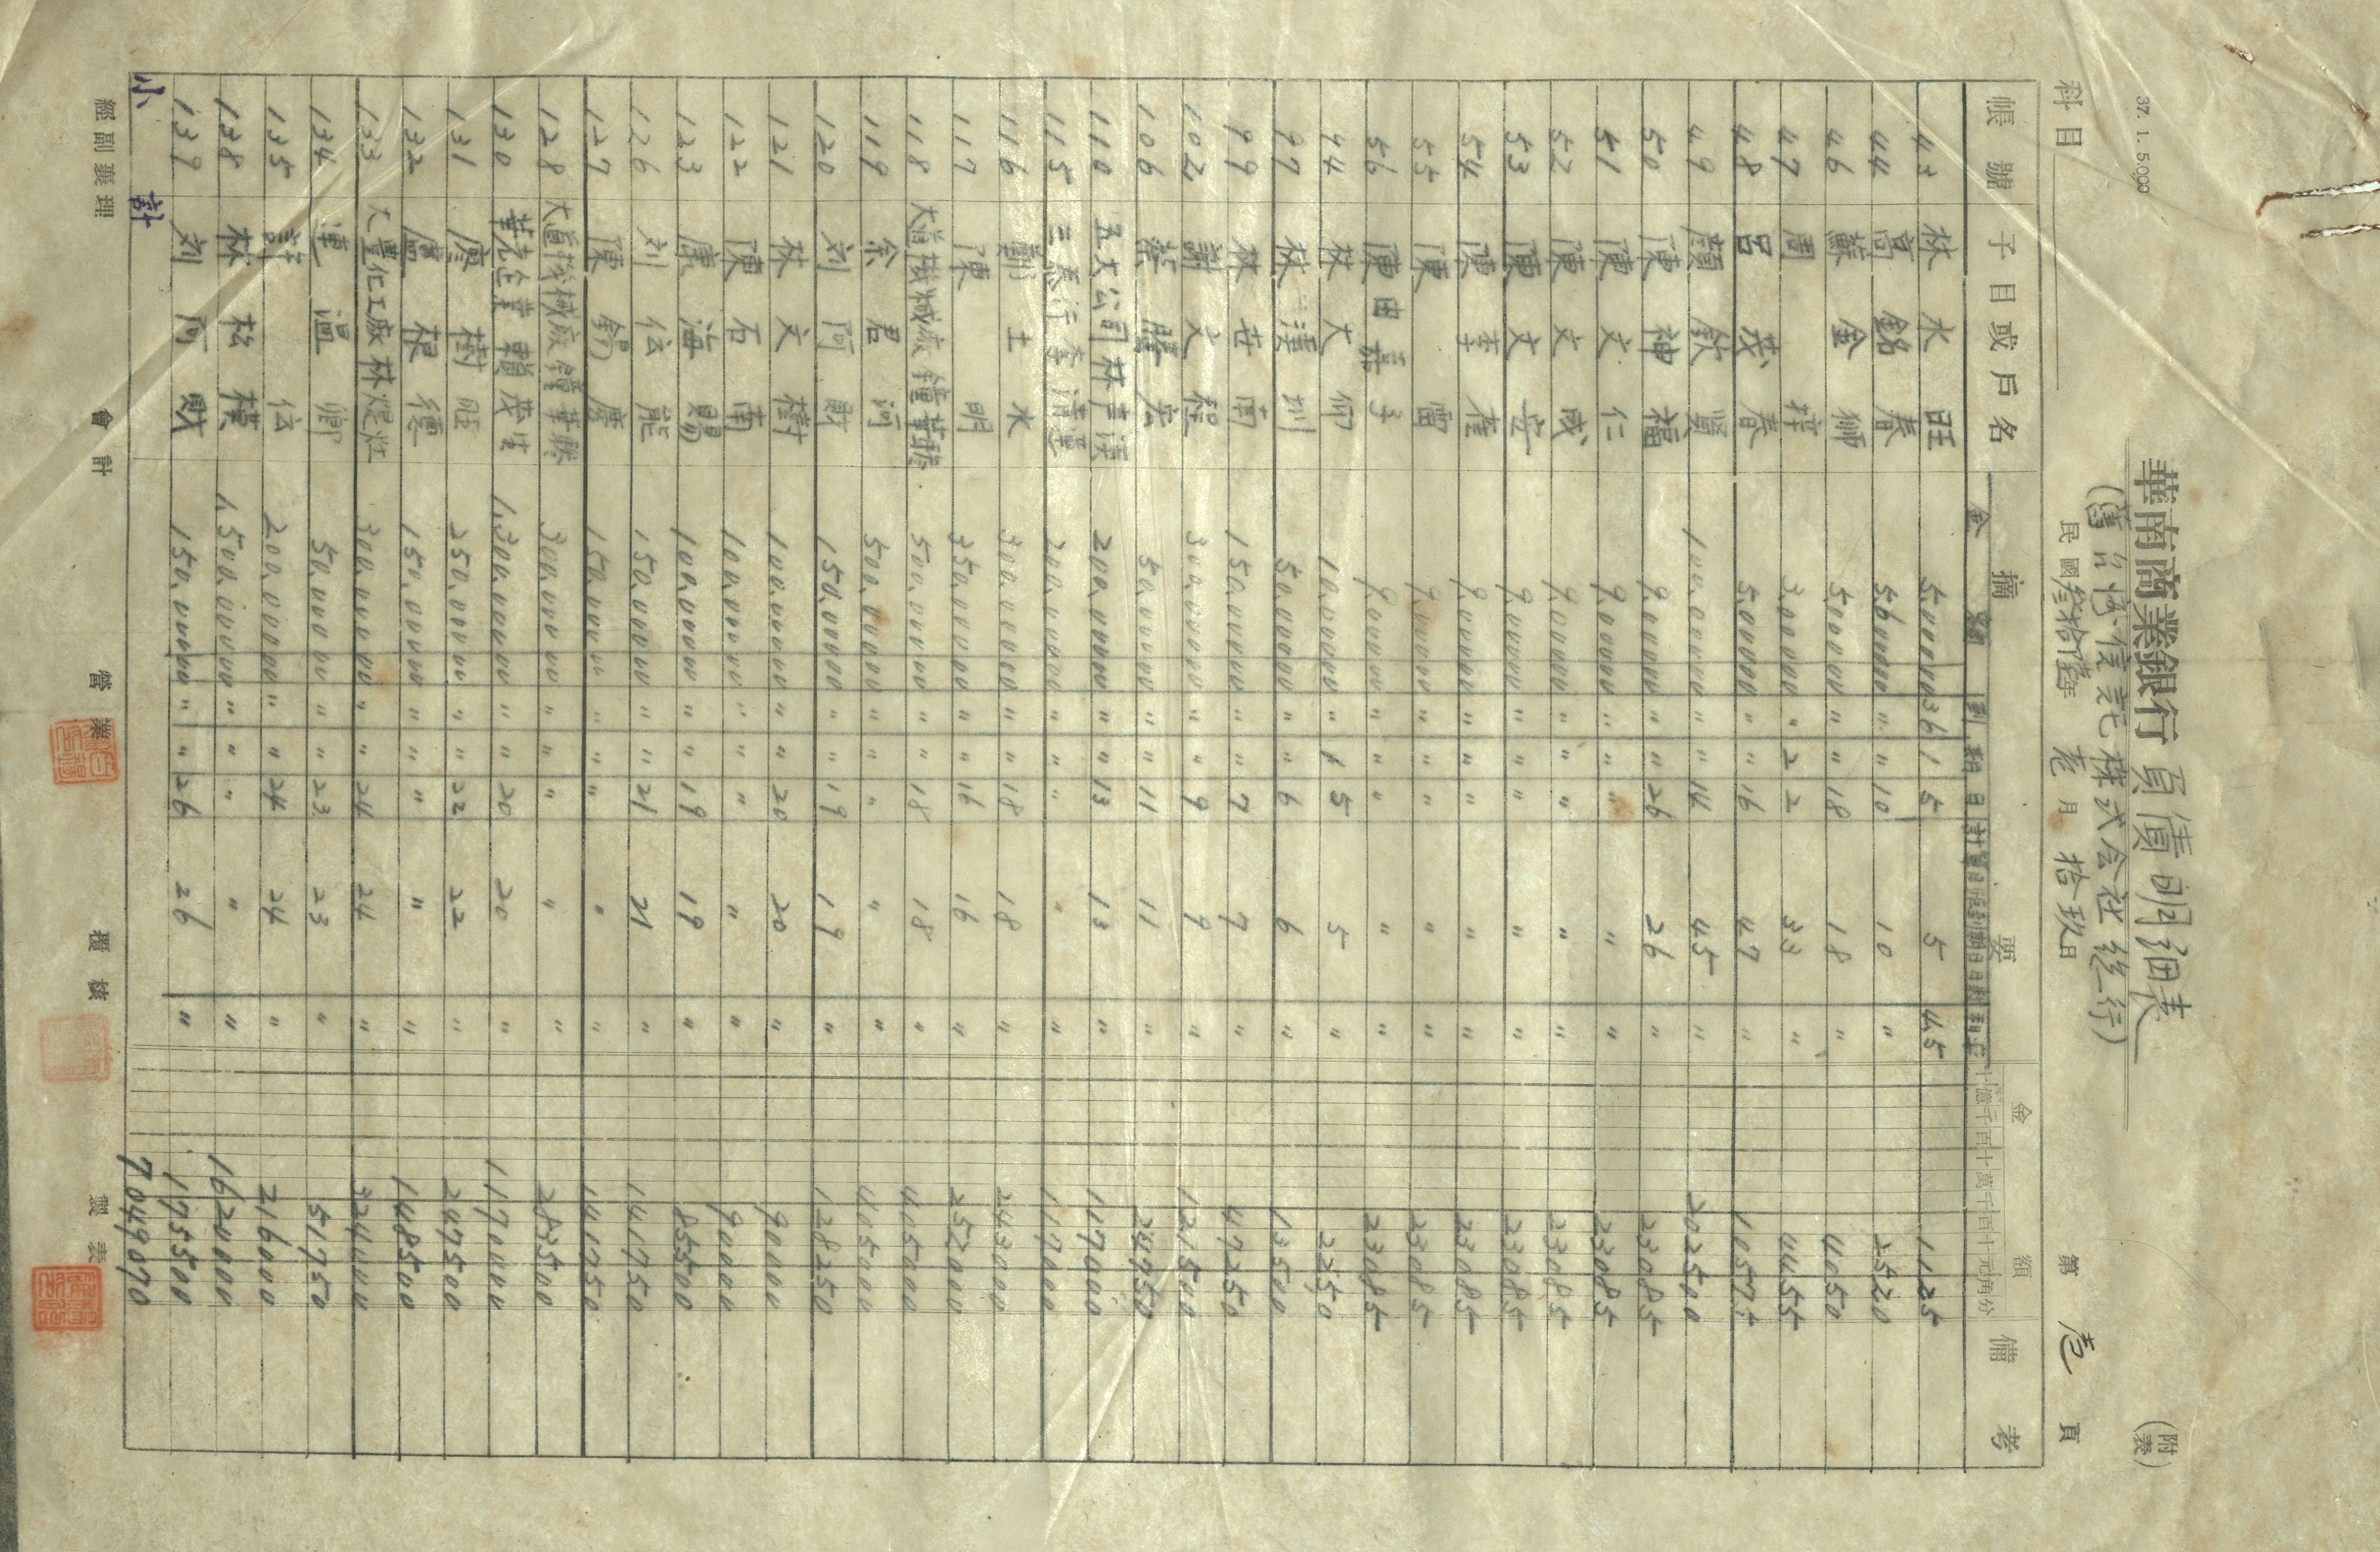 37. 1. 5.000
華南商業銀行 負債明細表 (附表)
(舊台灣信託株式会社總行)
科目 民國叁拾陸年 壱月 拾玖日 第 壱 頁
帳號 子目或戶名 摘要 金額 備考
金額 到期日
十億千百十萬千百十元角分
43 林水旺 5,000.00 36 1 5 5 45 1125
44 高銘春 5,600.00 〃 〃 10 10 〃 2520
46 蘇金獅 5,000.00 〃 〃 18 18 〃 4050
47 周 祥 3,000.00 〃 2 2 33 〃 4455
48 呂茂春 5,000.00 〃 〃 16 47 〃 10575
49 顏欽賢 100,000.00 〃 〃 14 45 〃 202500
50 陳神福 9,000.00 〃 〃 26 26 〃 23085
51 陳文仁 9,000.00 〃 〃 〃 〃 〃 23085
52 陳文成 9,000.00 〃 〃 〃 〃 〃 23085
53 陳文安 9,000.00 〃 〃 〃 〃 〃 23085
54 陳 桂 9,000.00 〃 〃 〃 〃 〃 23085
55 陳 雷 9,000.00 〃 〃 〃 〃 〃 23085
56 陳田嘉子 9,000.00 〃 〃 〃 〃 〃 23085
94 林大 10,000.00 〃 1 5 5 〃 2250
97 林漢圳 50,000.00 〃 〃 6 6 〃 13500
99 林世南 150,000.00 〃 〃 7 7 〃 47250
102 謝文程 300,000.00 〃 〃 9 9 〃 121500
106 蔡勝宏 50,000.00 〃 〃 11 11 〃 24750
110 五大公司林 200,000.00 〃 〃 13 13 〃 117000
115 三泰行李清運 200,000.00 〃 〃 〃 〃 〃 117000
116 鄭土水 300,000.00 〃 〃 18 18 〃 243000
117 陳 明 350,000.00 〃 〃 16 16 〃 252000
118 大道機械廠鐘華勝 500,000.00 〃 〃 18 18 〃 405000
119 余君河 500,000.00 〃 〃 〃 〃 〃 405000
120 刘阿財 150,000.00 〃 〃 19 19 〃 128250
121 林文樹 100,000.00 〃 〃 20 20 〃 90000
122 陳石南 100,000.00 〃 〃 〃 〃 〃 90000
123 康海賜 100,000.00 〃 〃 19 19 〃 85500
126 刘伝能 150,000.00 〃 〃 21 21 〃 141750
127 陳錫慶 150,000.00 〃 〃 〃 〃 〃 141750
128 大道機械廠鐘華勝 300,000.00 〃 〃 〃 〃 〃 283500
130 華光企業賴茂生 1,300,000.00 〃 〃 20 20 〃 1170000
131 廖樹旺 250,000.00 〃 〃 22 22 〃 247500
132 盧根德 150,000.00 〃 〃 〃 〃 〃 148500
133 大豊化工廠林煶灴 300,000.00 〃 〃 24 24 〃 324000
134 連溫卿 50,000.00 〃 〃 23 23 〃 51750
135 許 伝 200,000.00 〃 〃 24 24 〃 216000
138 林松模 1,500,000.00 〃 〃 〃 〃 〃 1620000
139 刘阿財 150,000.00 〃 〃 26 26 〃 175500
小計 7049070
經副襄理 會計 營業 覆核 製表